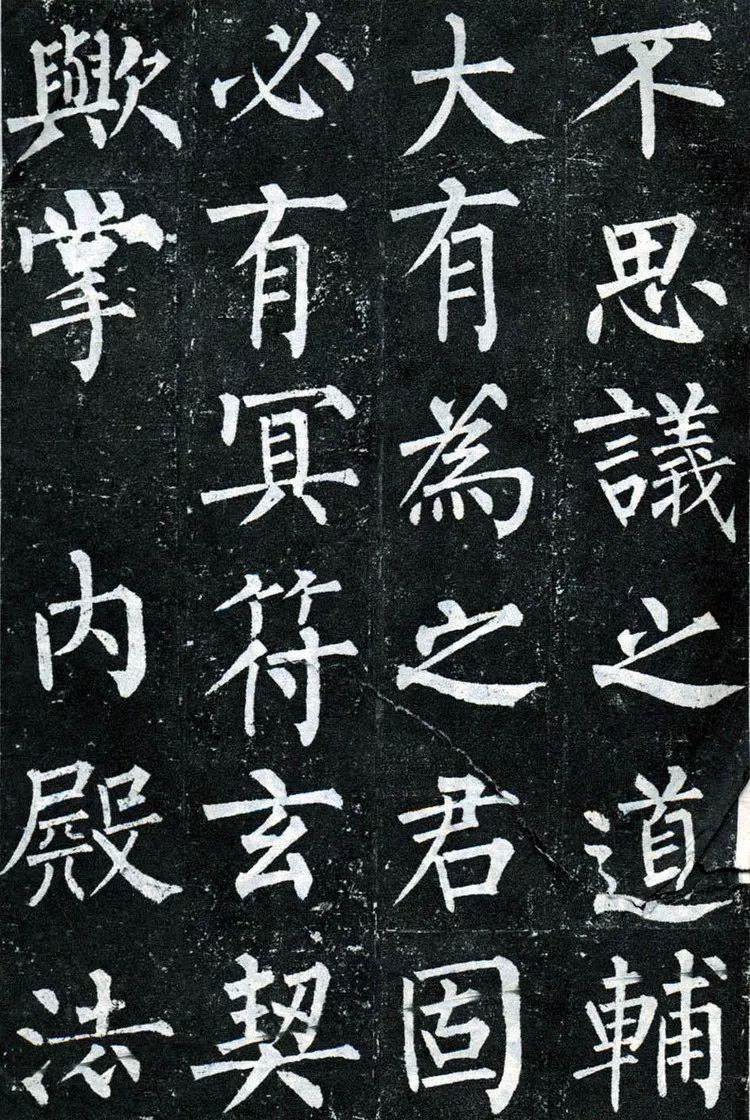 不思議之道輔
大有為之君固
必有冥符玄契
歟掌內殿法